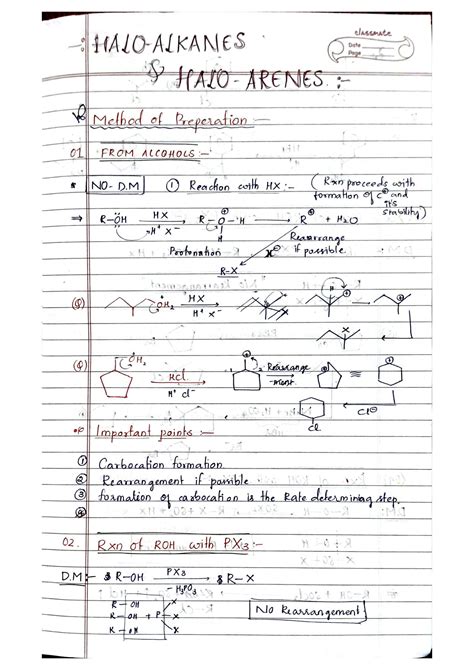 classmate
Date
Page
-: HALO-ALKANES
& HALO-ARENES :-
Method of Preperation :-
01 FROM ALCOHOLS :-
* NO-D.M ① Reaction with HX :- (Rxn proceeds with formation of C⊕ and it's stability)
⇒ R-ÖH HX H⁺ X⁻ R-O⊕-H H R⊕ + H₂O
Protonation X⊖ Rearrange if possible
R-X
(Q) ÖH₂ HX H⁺ X⁻ H ⊕ ⊕
X⁻
X
(Q) ÖH₂ HCl H⁺ Cl⁻ ⊕ Rearrange -ment ⊕ ≡ ⊕
Cl⊖
Cl
Important points :-
① Carbocation formation
② Rearrangement if possible
③ formation of carbocation is the Rate determining step.
④
02. Rxn of ROH with PX₃ :-
D.M :- 3 R-OH PX₃ -H₃PO₃ 3 R-X
R-OH X
R-OH + P-X
R-OH X
No Rearrangement